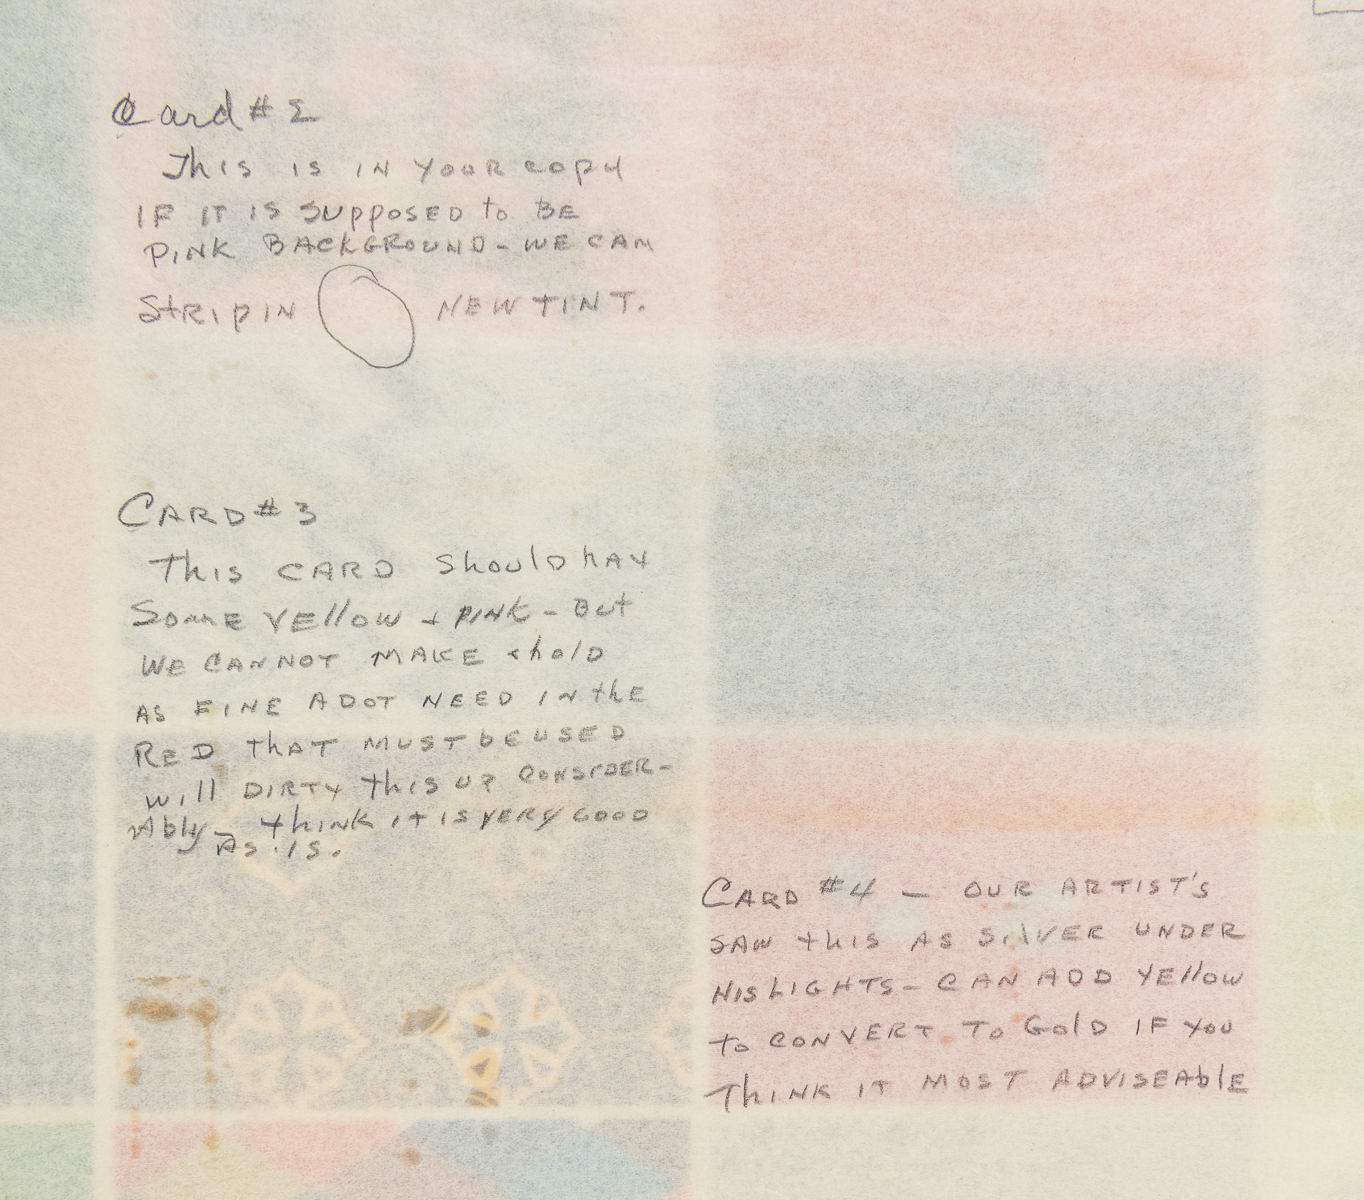 Card # 2
This is in your copy
IF IT IS SUPPOSED to BE
PINK BACKGROUND - WE CAN
StRIP IN NEW TINT.
CARD # 3
This CARD should hav
Some YEllow + PINK - But
WE CANNOT MAKE + hold
AS FINE A DOT NEED IN thE
RED thAT MUST bE USED
will DIRTY this UP CONSIDER-
Ably - think it is VERY GOOD
AS IS.
CARD #4 - OUR ARTIST'S
SAW this AS SilVER UNDER
HIS LIGHTS - CAN ADD YEllow
to CONVERT To Gold IF you
Think it MOST ADVISEAblE